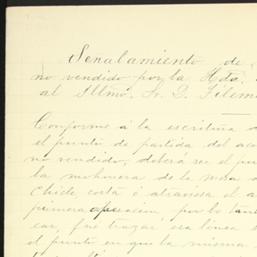 Señalamiento de
no vendido por la Hda.
al Illmo. Sr. D. Filem
Conforme á la escritura
el punto de partida del
no vendido, deberá ser el
la mohonera de la
Chica, corta ó atraviesa el a
primera operacion, por lo tan
car, fué trazar esa linea
el punto en que la misma